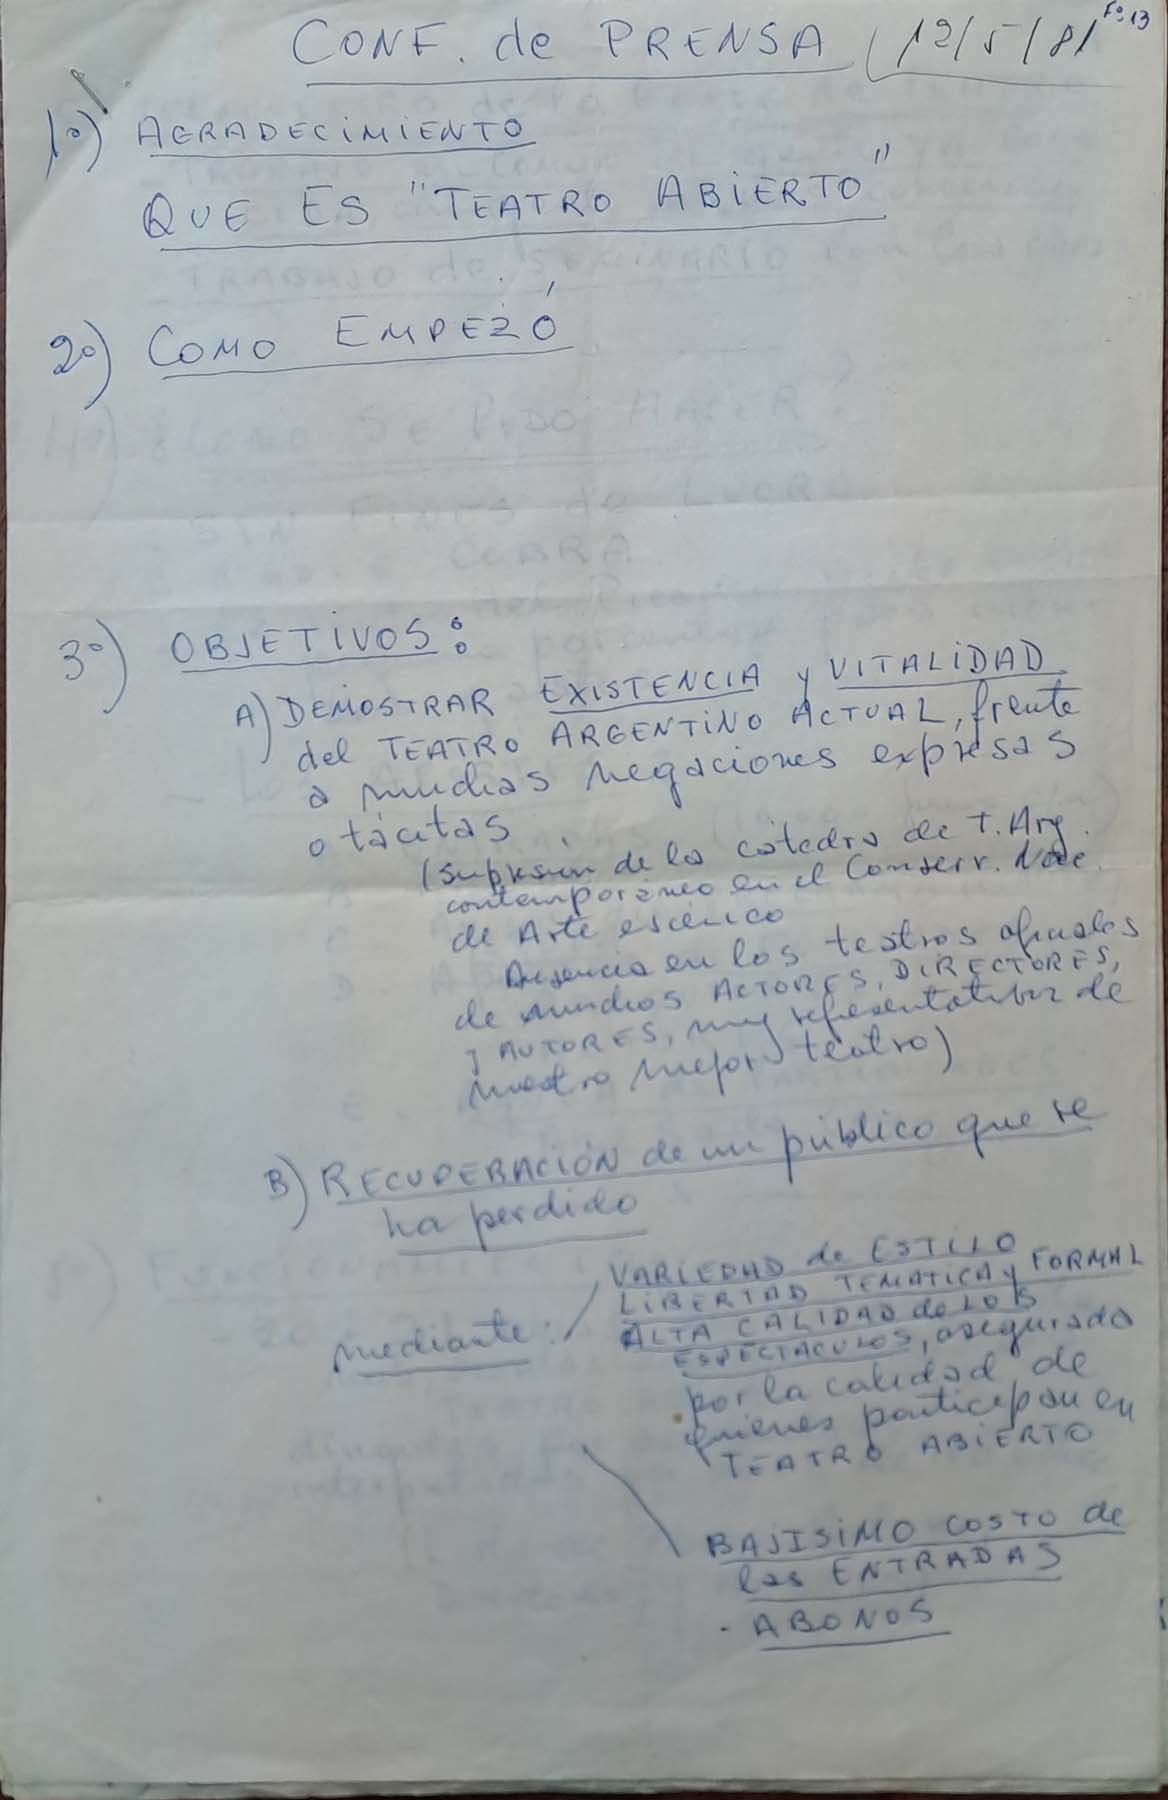 Fº 13
CONF. de PRENSA (12/5/81
1º) AGRADECIMIENTO
QUE ES "TEATRO ABIERTO"
2º) COMO EMPEZÓ
3º) OBJETIVOS:
A) DEMOSTRAR EXISTENCIA y VITALIDAD
del TEATRO ARGENTINO ACTUAL, frente
a muchas negaciones expresas
o tácitas.
(supresión de la cátedra de T. Arg.
contemporáneo en el Conserv. Nac.
de Arte escénico
Ausencia en los teatros oficiales
de muchos ACTORES, DIRECTORES,
y AUTORES, muy representativos de
nuestro mejor teatro)
B) RECUPERACIÓN de un público que se
ha perdido
mediante:
VARIEDAD de ESTILO
LIBERTAD TEMATICA y FORMAL
ALTA CALIDAD de LOS
ESPECTACULOS, asegurada
por la calidad de
quienes participan en
TEATRO ABIERTO
BAJISIMO COSTO de
las ENTRADAS
- ABONOS